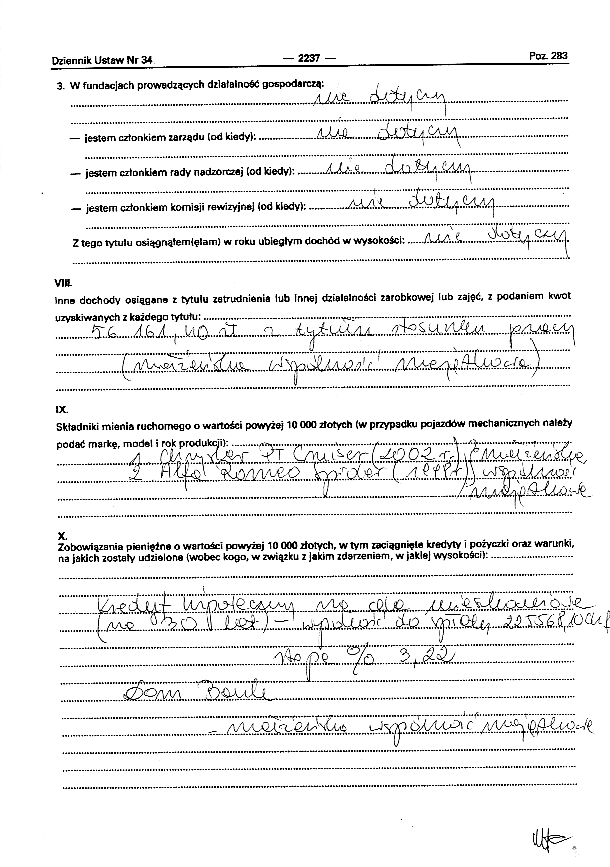 Dziennik Ustaw Nr 34 — 2237 — Poz. 283
3. W fundacjach prowadzących działalność gospodarczą:
nie dotyczy
— jestem członkiem zarządu (od kiedy): nie dotyczy
— jestem członkiem rady nadzorczej (od kiedy): nie dotyczy
— jestem członkiem komisji rewizyjnej (od kiedy): nie dotyczy
Z tego tytułu osiągnąłem(ęłam) w roku ubiegłym dochód w wysokości: nie dotyczy
VIII.
Inne dochody osiągane z tytułu zatrudnienia lub innej działalności zarobkowej lub zajęć, z podaniem kwot
uzyskiwanych z każdego tytułu:
56 161,40 zł z tytułu stosunku pracy
(małżeńska wspólność majątkowa)
IX.
Składniki mienia ruchomego o wartości powyżej 10 000 złotych (w przypadku pojazdów mechanicznych należy
podać markę, model i rok produkcji):
1 Chrysler PT Cruiser (2002 r.) małżeńska
2 Alfa Romeo Spider (1997) wspólność
majątkowa
X.
Zobowiązania pieniężne o wartości powyżej 10 000 złotych, w tym zaciągnięte kredyty i pożyczki oraz warunki,
na jakich zostały udzielone (wobec kogo, w związku z jakim zdarzeniem, w jakiej wysokości):
Kredyt hipoteczny na cele mieszkaniowe
(na 30 lat) – do spłaty 225568,10 chf
stopa % 3,22
Dom Bank
- małżeńska wspólność majątkowa